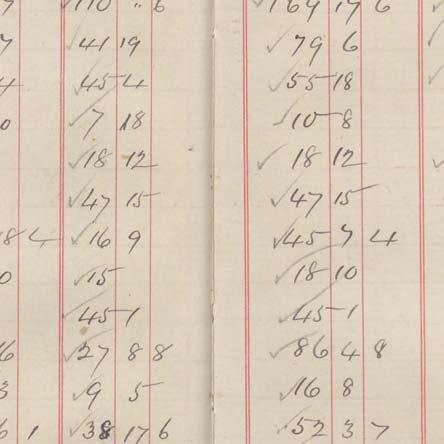 7 110 " 6 169 19 6
7 41 19 79 6
4 45 4 55 18
0 7 18 10 8
18 12 18 12
47 15 47 15
184 16 9 45 7 4
0 15 18 10
45 1 45 1
16 27 8 8 86 4 8
3 9 5 16 8
6 1 38 17 6 52 3 7